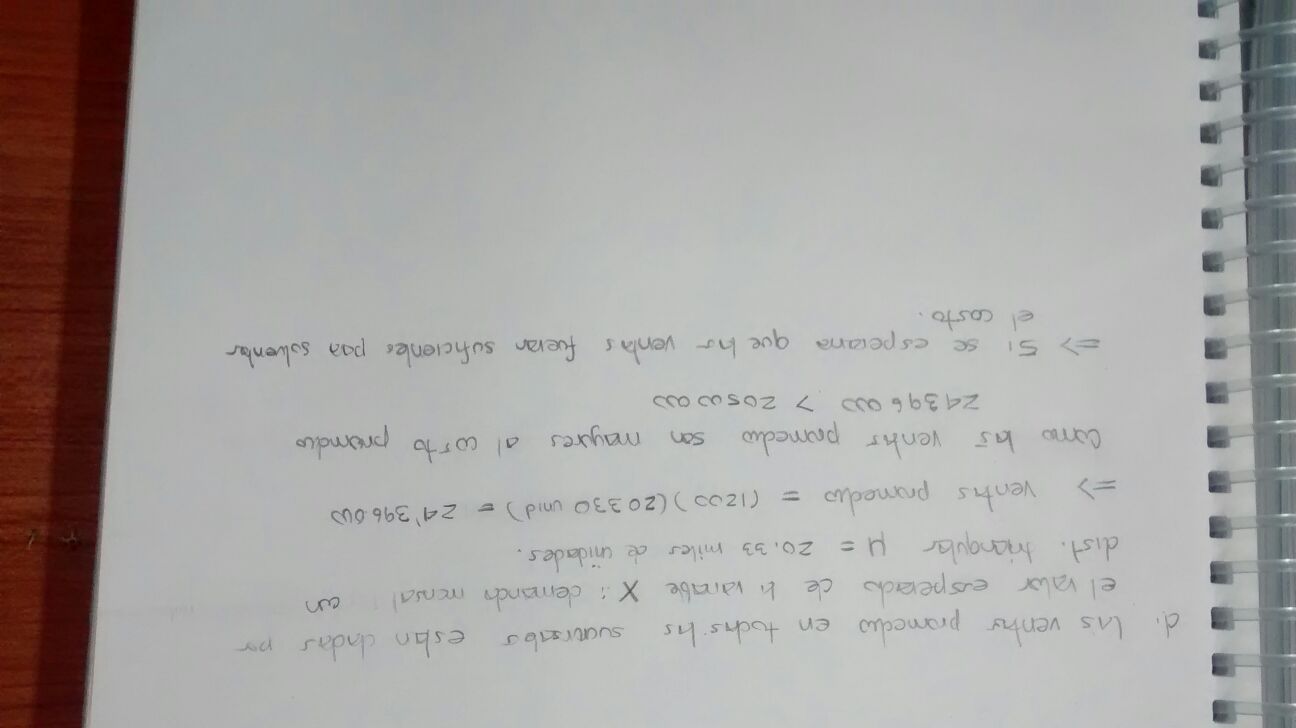 d. Las ventas promedio en todas las sucursales estan dadas por
el valor esperado de la variable X: demanda mensual con
dist. triangular μ = 20.33 miles de unidades.
=> ventas promedio = (1200)(20330 unid) = 24'396 000
Como las ventas promedio son mayores al costo promedio
24 396 000 > 20500 000
=> Si se esperaria que las ventas fueran suficientes para solventar
el costo.